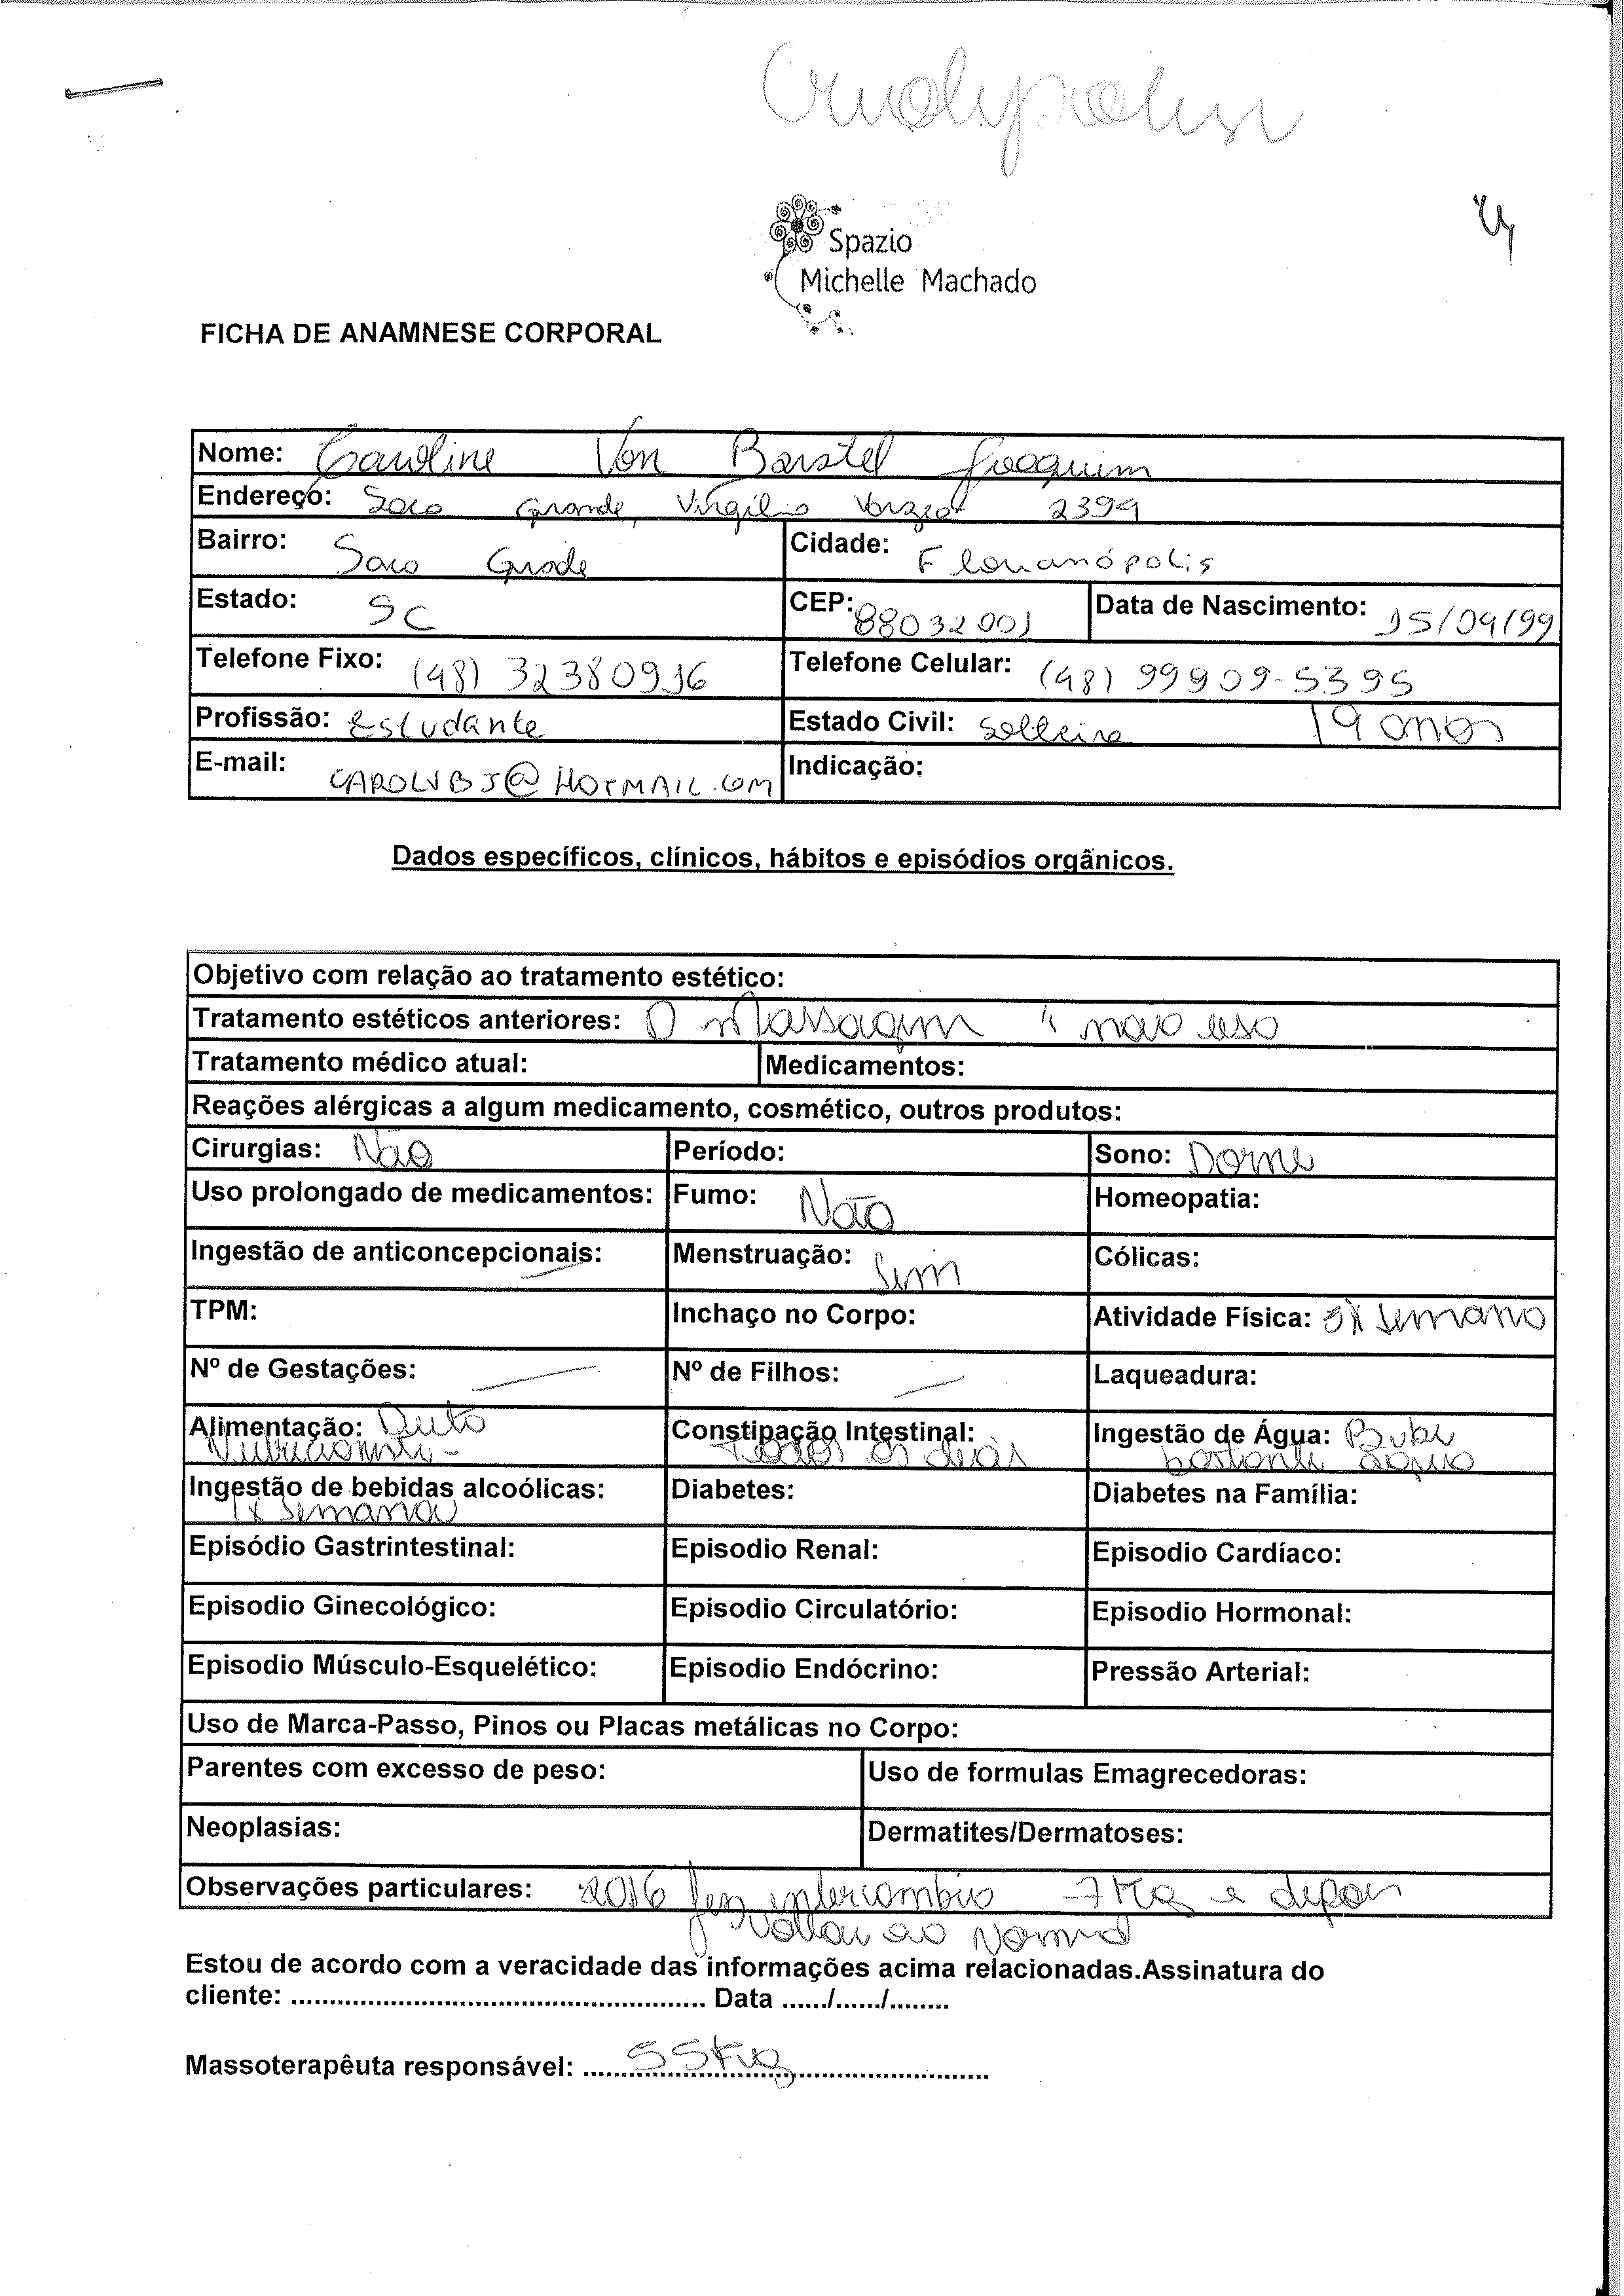 Spazio
Michelle Machado
FICHA DE ANAMNESE CORPORAL
Nome: Caroline Von Barstel Joaquim
Endereço: Saco Grande, Virgílio Varzea 2399
Bairro: Saco Grade Cidade: Florianópolis
Estado: SC CEP: 88032001 Data de Nascimento: 15/09/99
Telefone Fixo: (48) 32380916 Telefone Celular: (48) 99909-5395
Profissão: Estudante Estado Civil: Solteira 19 anos
E-mail: CAROLVBJ@HOTMAIL.COM Indicação:
Dados específicos, clínicos, hábitos e episódios orgânicos.
Objetivo com relação ao tratamento estético:
Tratamento estéticos anteriores: Massagem
Tratamento médico atual: Medicamentos:
Reações alérgicas a algum medicamento, cosmético, outros produtos:
Cirurgias: Não Período: Sono: Dorme
Uso prolongado de medicamentos: Fumo: Não Homeopatia:
Ingestão de anticoncepcionais: Menstruação: Sim Cólicas:
TPM: Inchaço no Corpo: Atividade Física: 3X semana
Nº de Gestações: Nº de Filhos: Laqueadura:
Alimentação: Dieta Constipação Intestinal: Ingestão de Água: Bebe
Nutricionista - Todos os dias bastante água
Ingestão de bebidas alcoólicas: Diabetes: Diabetes na Família:
1x semana
Episódio Gastrintestinal: Episodio Renal: Episodio Cardíaco:
Episodio Ginecológico: Episodio Circulatório: Episodio Hormonal:
Episodio Músculo-Esquelético: Episodio Endócrino: Pressão Arterial:
Uso de Marca-Passo, Pinos ou Placas metálicas no Corpo:
Parentes com excesso de peso: Uso de formulas Emagrecedoras:
Neoplasias: Dermatites/Dermatoses:
Observações particulares: 2016 fez intercambio -7 Kg e depois
voltou ao Normal
Estou de acordo com a veracidade das informações acima relacionadas.Assinatura do
cliente: ...................................................... Data ....../....../........
Massoterapêuta responsável: ..... 55Kg .....